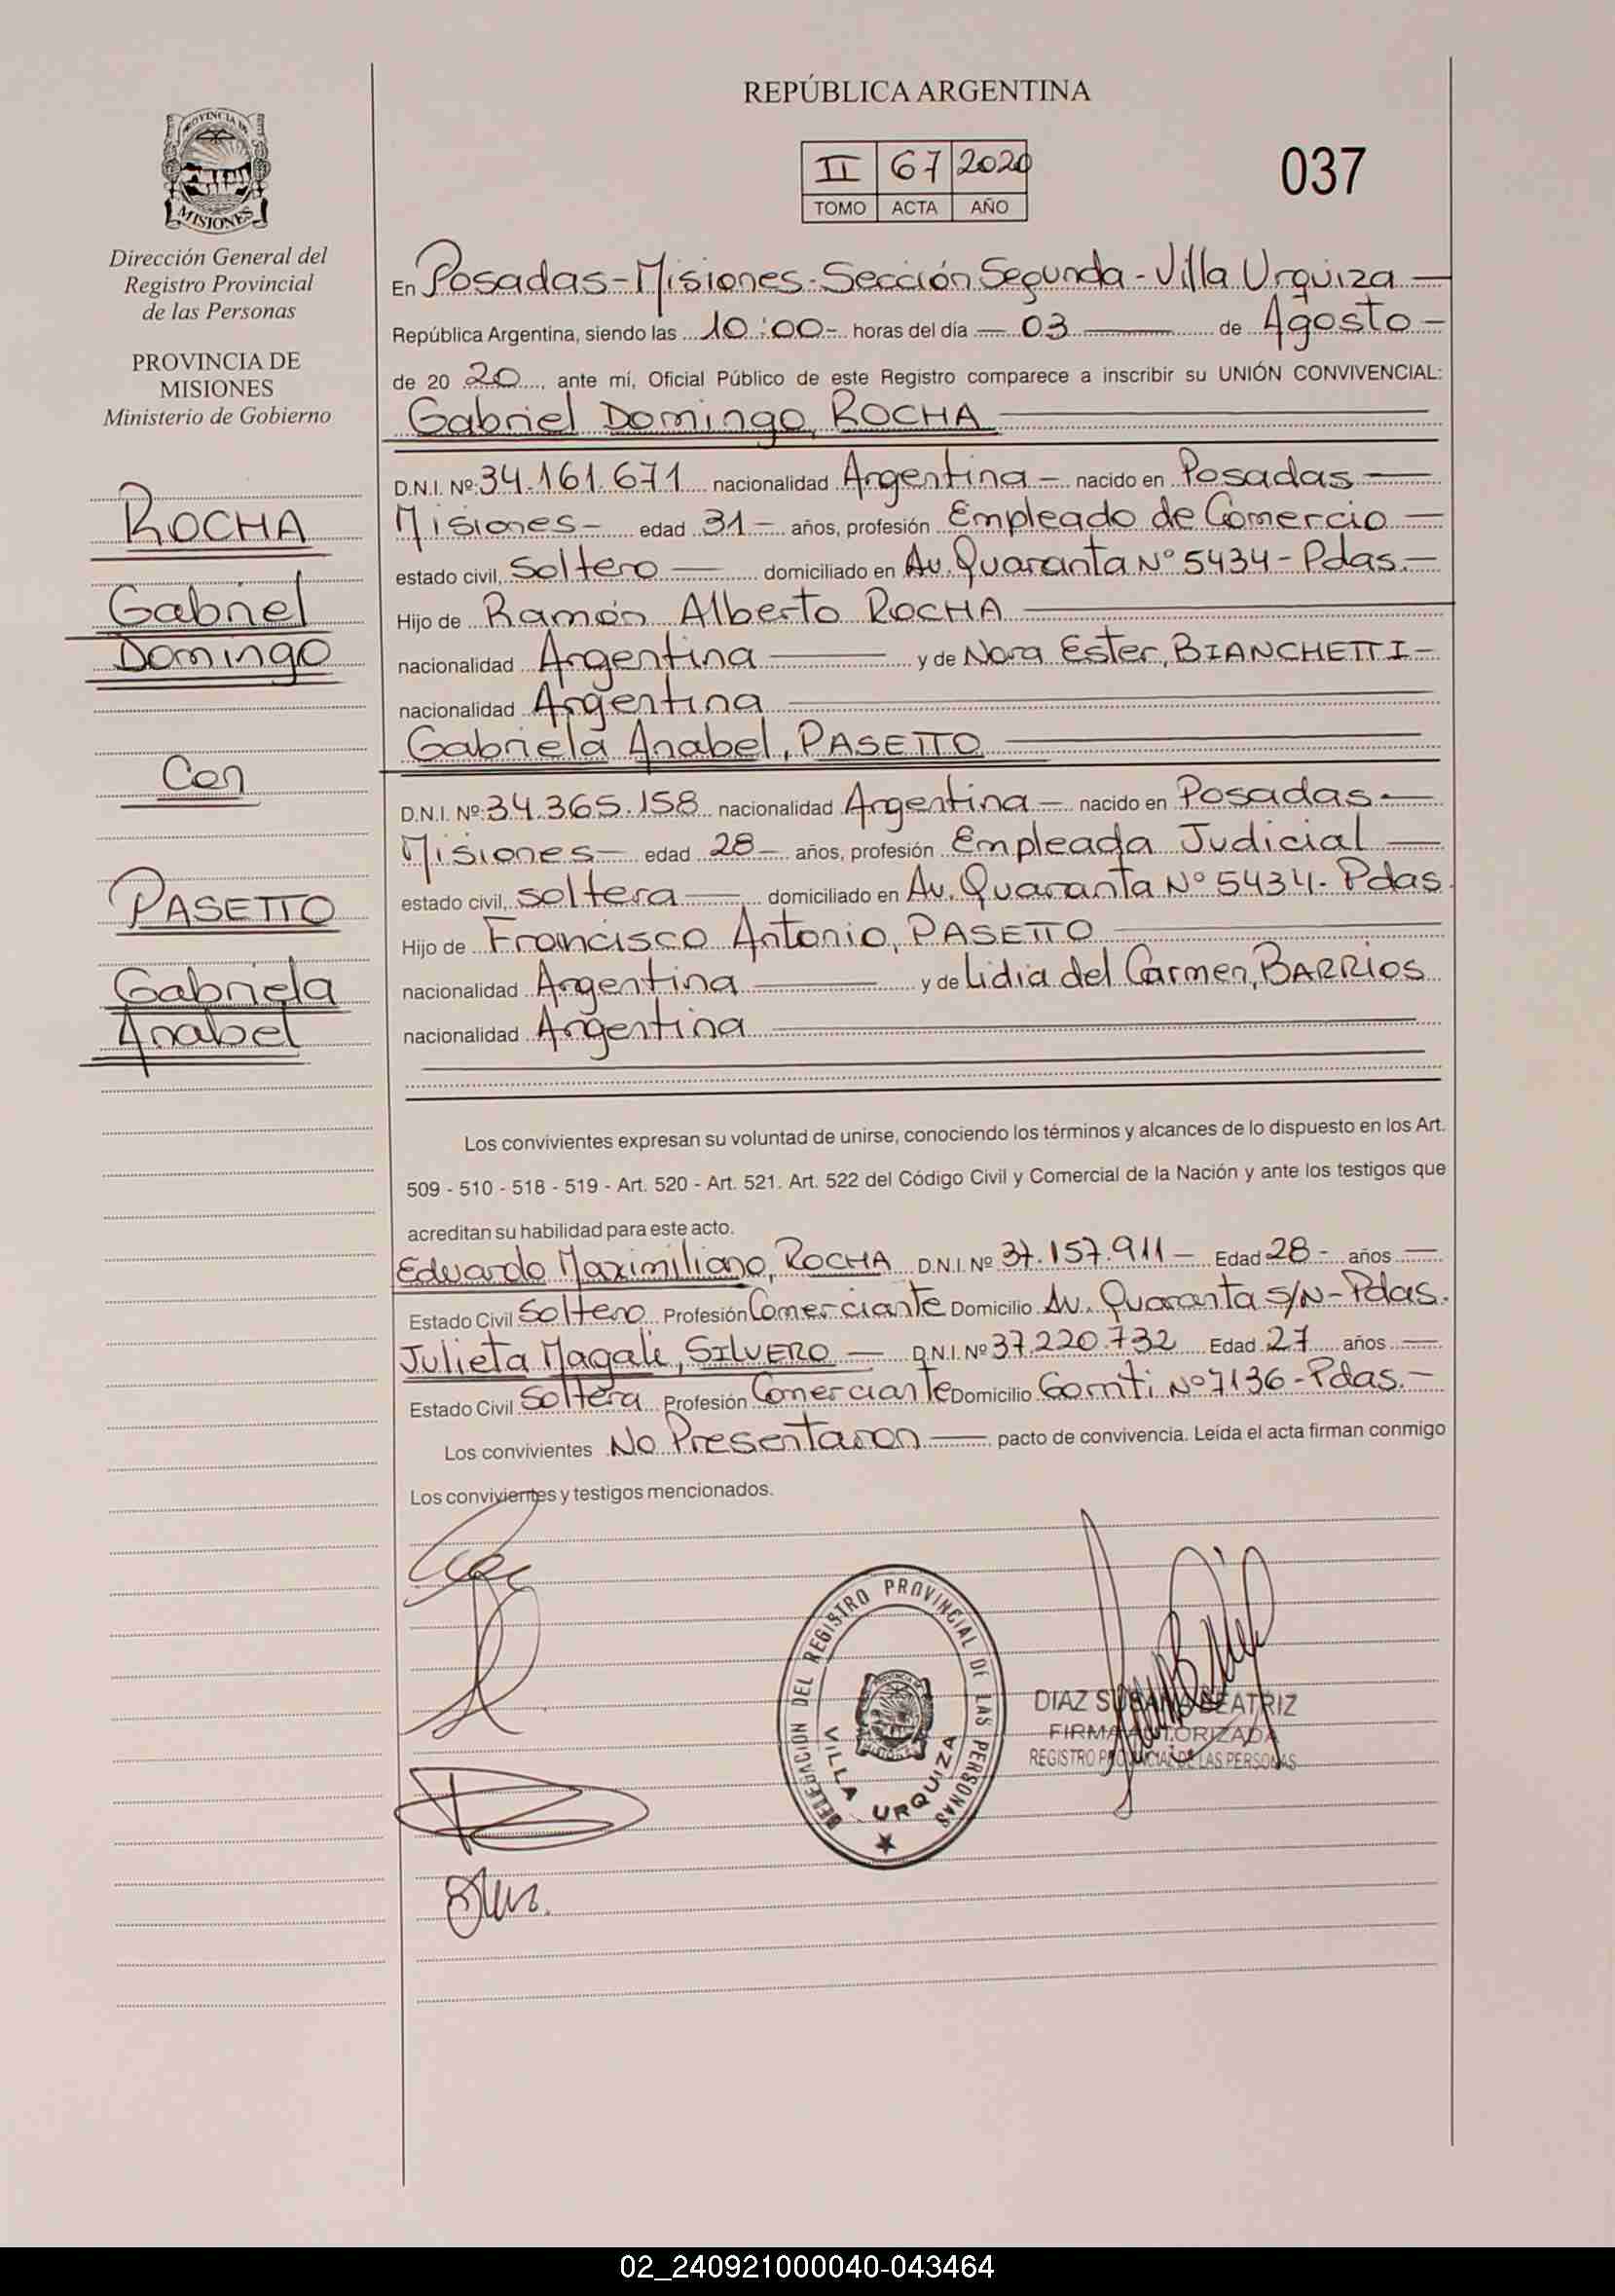 REPÚBLICA ARGENTINA
II 67 2020
TOMO ACTA AÑO
037
PROVINCIA DE
MISIONES
Dirección General del
Registro Provincial
de las Personas
PROVINCIA DE
MISIONES
Ministerio de Gobierno
ROCHA
Gabriel
Domingo
Con
PASETTO
Gabriela
Anabel
En Posadas-Misiones-Sección Segunda-Villa Urquiza
República Argentina, siendo las 10:00- horas del día 03 de Agosto-
de 20 20, ante mí, Oficial Público de este Registro comparece a inscribir su UNIÓN CONVIVENCIAL:
Gabriel Domingo, ROCHA
D.N.I. Nº: 34.161.671 nacionalidad Argentina- nacido en Posadas
Misiones- edad 31- años, profesión Empleado de Comercio
estado civil, Soltero domiciliado en Av. Quaranta N° 5434- Pdas.-
Hijo de Ramón Alberto ROCHA
nacionalidad Argentina y de Nora Ester, BIANCHETTI-
nacionalidad Argentina
Gabriela Anabel, PASETTO
D.N.I. Nº: 34.365.158 nacionalidad Argentina- nacido en Posadas-
Misiones- edad 28- años, profesión Empleada Judicial
estado civil, soltera domiciliado en Av. Quaranta N° 5434- Pdas
Hijo de Francisco Antonio, PASETTO
nacionalidad Argentina y de Lidia del Carmen, BARRIOS
nacionalidad Argentina
Los convivientes expresan su voluntad de unirse, conociendo los términos y alcances de lo dispuesto en los Art.
509 - 510 - 518 - 519 - Art. 520 - Art. 521. Art. 522 del Código Civil y Comercial de la Nación y ante los testigos que
acreditan su habilidad para este acto.
Eduardo Maximiliano, ROCHA D.N.I. Nº 37.157.911- Edad 28- años
Estado Civil Soltero Profesión Comerciante Domicilio Av. Quaranta S/N-Pdas.
Julieta Magali, SILVERO D.N.I. Nº 37.220.732 Edad 27 años
Estado Civil Soltera Profesión Comerciante Domicilio N°7136-Pdas.-
Los convivientes No Presentaron pacto de convivencia. Leída el acta firman conmigo
Los convivientes y testigos mencionados.
DELEGACION DEL REGISTRO PROVINCIAL DE LAS PERSONAS
VILLA URQUIZA
DIAZ SUSANA BEATRIZ
FIRMA AUTORIZADA
REGISTRO PROVINCIAL DE LAS PERSONAS
02_240921000040-043464